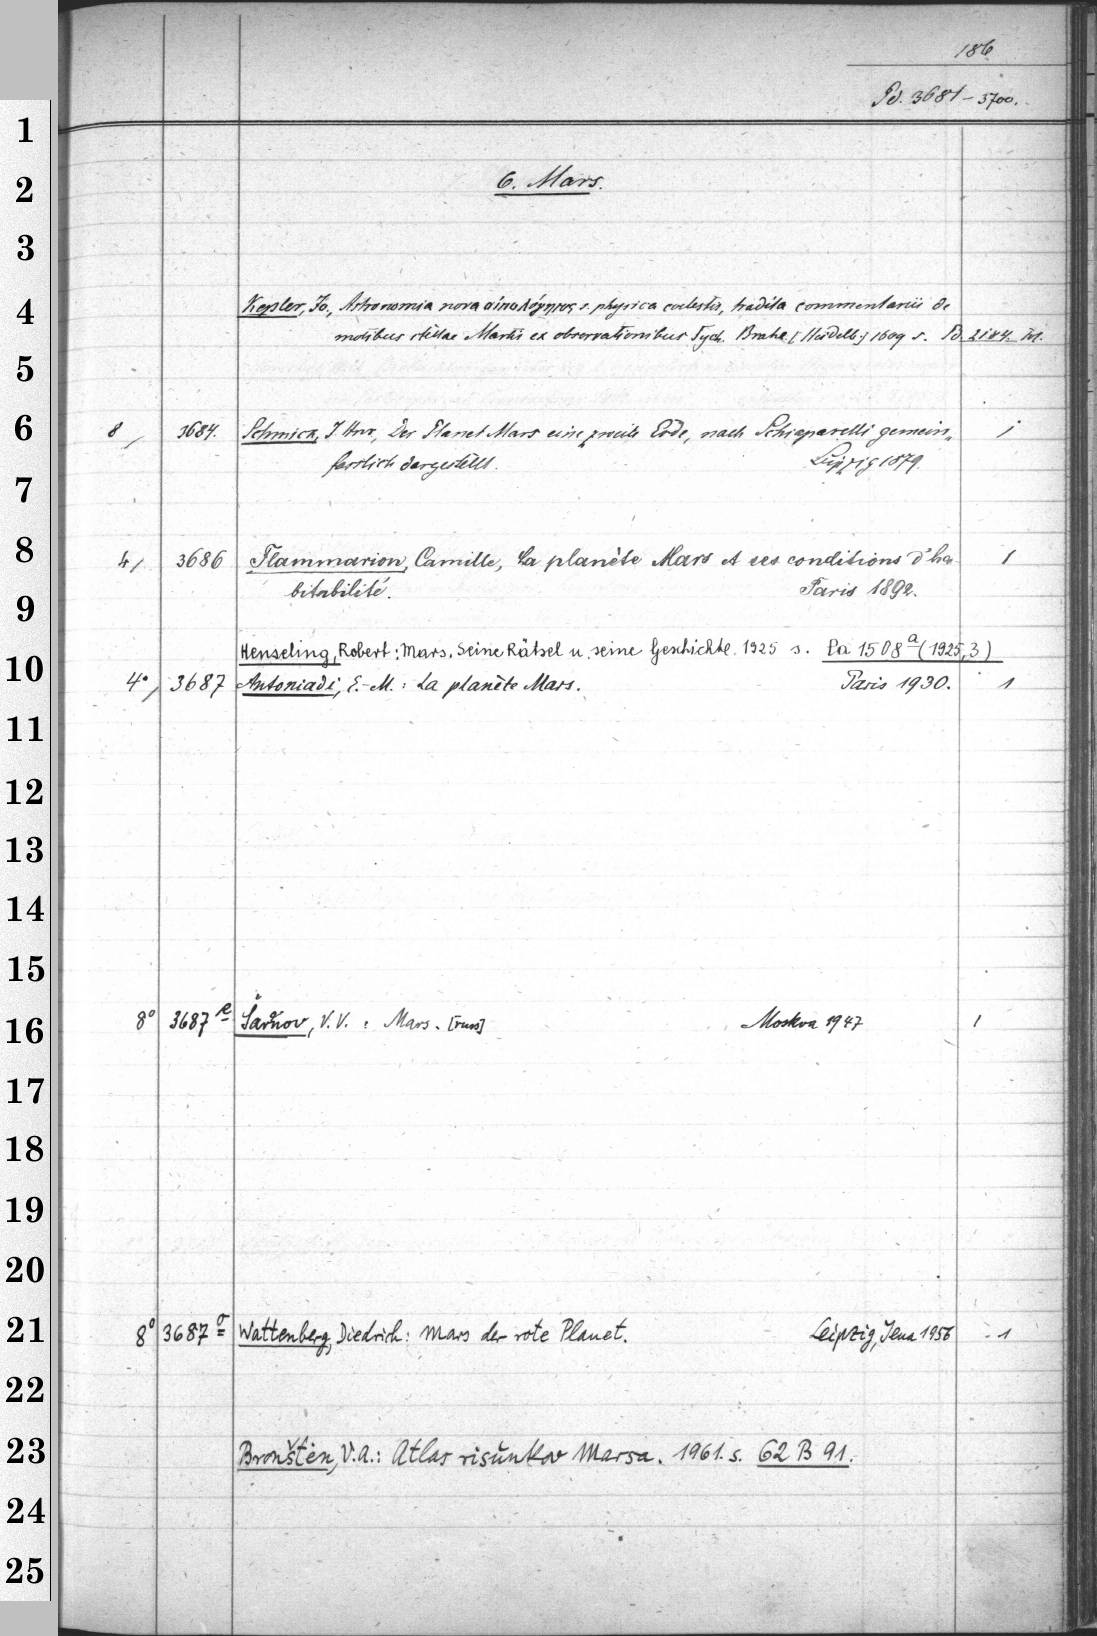 186
Pd. 3681-3700.
1
2
3
4
5
6
7
8
9
10
11
12
13
14
15
16
17
18
19
20
21
22
23
24
25
6. Mars.
Kepler, Jo., Astronomia nova αἰτιολόγητος s. physica coelestis, tradita commentariis de
motibus stellae Martis ex observationibus Tych. Brahe. [Heidelb.] 1609 s. Pd. 2184.
8, 3684. Schmick, J Hnr, Der Planet Mars eine zweite Erde, nach Schiaparelli gemein-
fasslich dargestellt. Leipzig 1879. 1
4, 3686 Flammarion, Camille, La planète Mars et ses conditions d'ha-
bitabilité. Paris 1892. 1
Henseling, Robert: Mars. Seine Rätsel u. seine Geschichte. 1925 s. Pa 1508ᵃ (1925,3)
4°, 3687 Antoniadi, E.-M.: La planète Mars. Paris 1930. 1
8° 3687ᵉ Šaronov, V.V.: Mars. [russ] Moskva 1947 1
8° 3687ᵒ Wattenberg, Diedrich: Mars der rote Planet. Leipzig, Jena 1956 1
Bronštėn, V.A.: Atlas risunkov Marsa. 1961. s. 62 B 91.